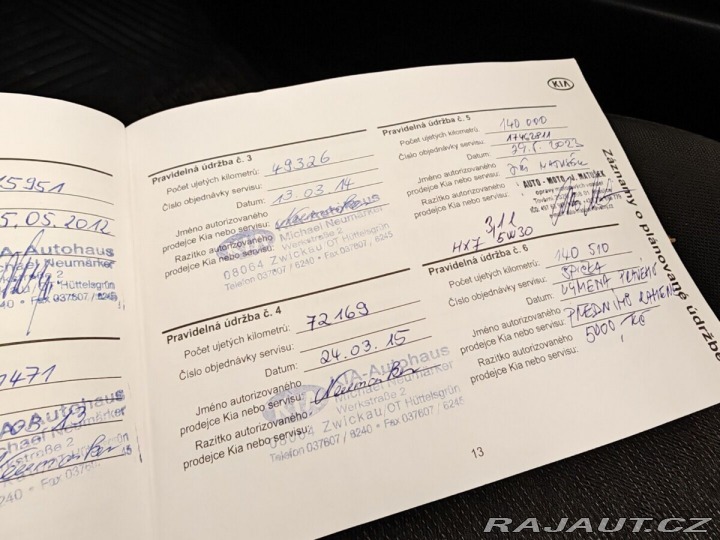 15951
5.05.2012
KIA-Autohaus
Michael Neumärker
Werkstraße 2
Hüttelsgrün
6240 • Fax 037607 /
0471
Autohaus
Neumärker
Werkstraße 2
6240 • Fax 03760
Pravidelná údržba č. 3
Počet ujetých kilometrů: 49326
Číslo objednávky servisu:
Datum: 13.03.14
Jméno autorizovaného
prodejce Kia nebo servisu:
Razítko autorizovaného
prodejce Kia nebo servisu:
KIA-Autohaus
Michael Neumärker
Werkstraße 2
08064 Zwickau, OT Hüttelsgrün
Telefon 037607 / 6240 • Fax 037607 / 6245
Pravidelná údržba č. 4
Počet ujetých kilometrů: 72169
Číslo objednávky servisu:
Datum: 24.03.15
Jméno autorizovaného
prodejce Kia nebo servisu:
Razítko autorizovaného
prodejce Kia nebo servisu:
KIA-Autohaus
Michael Neumärker
Werkstraße 2
08064 Zwickau, OT Hüttelsgrün
Telefon 037607 / 6240 • Fax 037607 / 6245
KIA
Pravidelná údržba č. 5
Počet ujetých kilometrů: 140 000
Číslo objednávky servisu:
Datum: 2023
Jméno autorizovaného
prodejce Kia nebo servisu:
Razítko autorizovaného
prodejce Kia nebo servisu:
AUTO - MOTO
HX7 5W30
Pravidelná údržba č. 6
Počet ujetých kilometrů: 140 510
Číslo objednávky servisu:
Datum: VÝMĚNA PRAVÉHO
Jméno autorizovaného
prodejce Kia nebo servisu: PŘEDNÍHO RAMENE
Razítko autorizovaného 5000 Kč
prodejce Kia nebo servisu:
Záznamy o plánované údržbě
13
RAJAUT.CZ